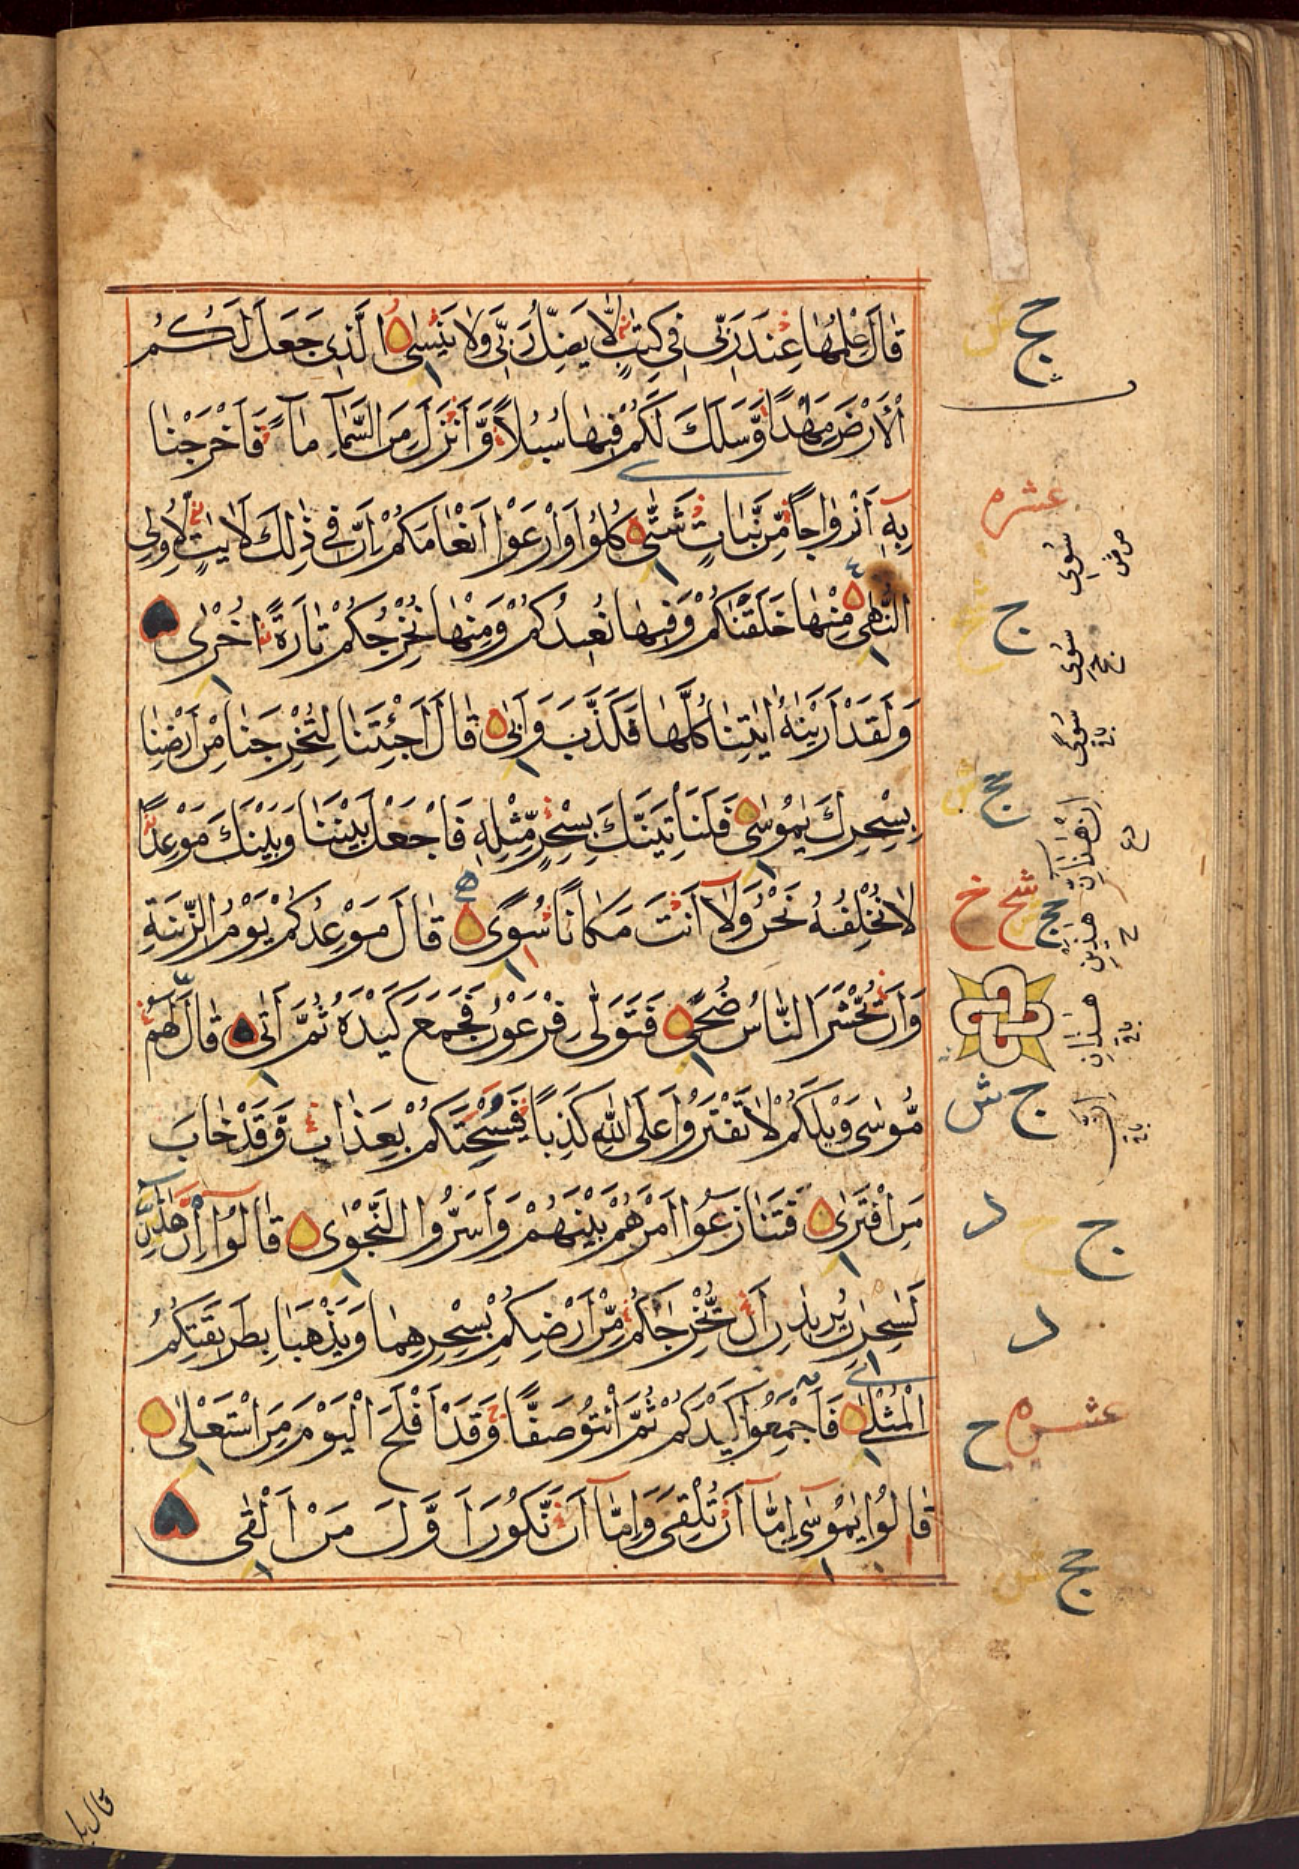 قَالَ عِلْمُهَا عِنْدَ رَبِّى فِى كِتٰبٍ لَّا يَضِلُّ رَبِّى وَلَا يَنْسٰى الَّذِى جَعَلَ لَكُمُ
الْاَرْضَ مِهٰدًا وَّسَلَكَ لَكُمْ فِيهَا سُبُلًا وَّاَنْزَلَ مِنَ السَّمَآءِ مَآءً فَاَخْرَجْنَا
بِهٖ اَزْوَاجًا مِّنْ نَّبَاتٍ شَتّٰى كُلُوْا وَارْعَوْا اَنْعَامَكُمْ اِنَّ فِى ذٰلِكَ لَاٰيٰتٍ لِّاُولِى
النُّهٰى مِنْهَا خَلَقْنٰكُمْ وَفِيهَا نُعِيدُكُمْ وَمِنْهَا نُخْرِجُكُمْ تَارَةً اُخْرٰى
وَلَقَدْ اَرَيْنٰهُ اٰيٰتِنَا كُلَّهَا فَكَذَّبَ وَاَبٰى قَالَ اَجِئْتَنَا لِتُخْرِجَنَا مِنْ اَرْضِنَا
بِسِحْرِكَ يٰمُوسٰى فَلَنَاْتِيَنَّكَ بِسِحْرٍ مِّثْلِهٖ فَاجْعَلْ بَيْنَنَا وَبَيْنَكَ مَوْعِدًا
لَا نُخْلِفُهُ نَحْنُ وَلَآ اَنْتَ مَكَانًا سُوًى قَالَ مَوْعِدُكُمْ يَوْمُ الزِّينَةِ
وَاَنْ تُحْشَرَ النَّاسُ ضُحًى فَتَوَلّٰى فِرْعَوْنُ فَجَمَعَ كَيْدَهُ ثُمَّ اَتٰى قَالَ لَهُمْ
مُّوسٰى وَيْلَكُمْ لَا تَفْتَرُوْا عَلَى اللّٰهِ كَذِبًا فَيُسْحِتَكُمْ بِعَذَابٍ وَّقَدْ خَابَ
مَنِ افْتَرٰى فَتَنَازَعُوْا اَمْرَهُمْ بَيْنَهُمْ وَاَسَرُّوا النَّجْوٰى قَالُوْا اِنْ هٰذٰنِ
لَسٰحِرٰنِ يُرِيدٰنِ اَنْ تُّخْرِجَاكُمْ مِّنْ اَرْضِكُمْ بِسِحْرِهِمَا وَيَذْهَبَا بِطَرِيقَتِكُمُ
الْمُثْلٰى فَاَجْمِعُوْا كَيْدَكُمْ ثُمَّ ائْتُوْ صَفًّا وَّقَدْ اَفْلَحَ الْيَوْمَ مَنِ اسْتَعْلٰى
قَالُوْا يٰمُوسٰى اِمَّآ اَنْ تُلْقِىَ وَاِمَّآ اَنْ نَّكُونَ اَوَّلَ مَنْ اَلْقٰى
عشره
سُوى
سُوى
سُوى
هٰذَيْنِ
هٰذَانِ
عشره